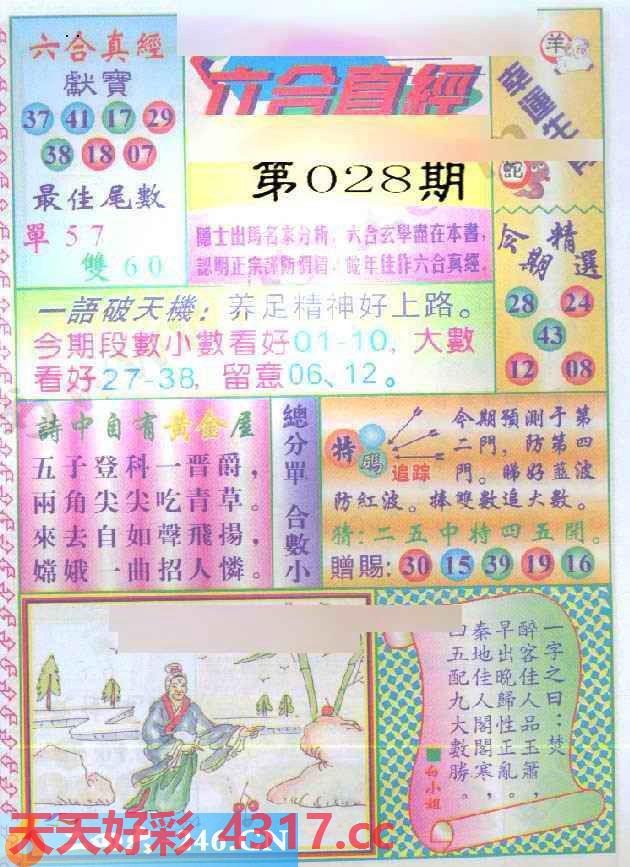 六合真經
獻寶
37 41 17 29
38 18 07
最佳尾數
單57
雙60
六合真經
第028期
隱士出馬名家分析，六合玄學盡在本書，
認明正宗謹防假冒，蛇年佳作六合真經。
羊
幸運生肖
蛇
今期精選
28 24
43
12 08
一語破天機：养足精神好上路。
今期段數小數看好01-10，大數
看好27-38，留意06、12。
詩中自有黃金屋
五子登科一晋爵，
兩角尖尖吃青草。
來去自如聲飛揚，
嫦娥一曲招人憐。
總分單 合數小
特碼追踪
今期預測于第
二門，防第四
門。睇好藍波
防紅波。捧雙數追大數。
猜：二五中特四五開。
贈賜：30 15 39 19 16
一字之曰：焚
醉客佳人品玉簫，
早出晚歸性正亂。
秦地佳人閣閣寒，
四五配九大數勝。
白小姐
天天好彩 4317.cc